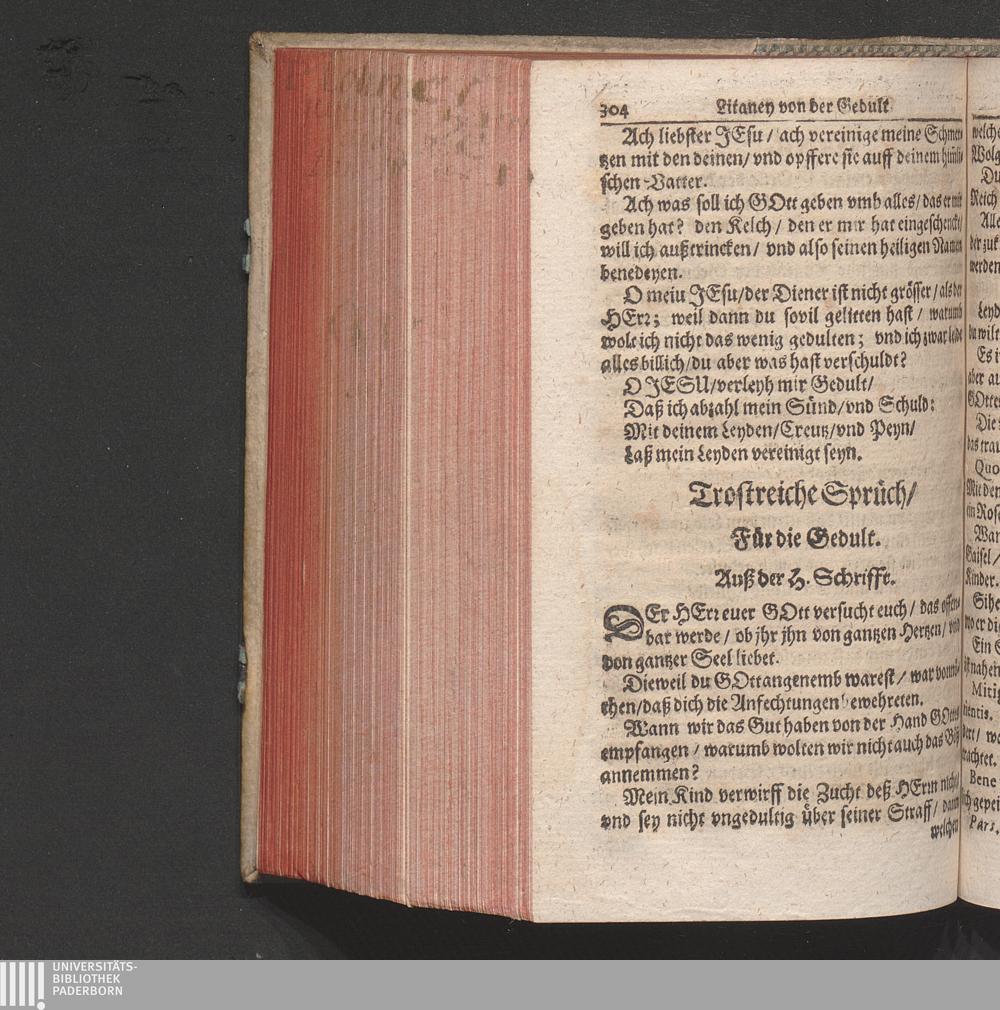 304 Litaney von der Gedult
Ach liebster JEsu / ach vereinige meine Schmer-
tzen mit den deinen / vnd opffere sie auff deinem him̃li-
schen Vatter.
Ach was soll ich GOtt geben vmb alles / das er mir
geben hat? den Kelch / den er mir hat eingeschenckt /
will ich außtrincken / vnd also seinen heiligen Namen
benedeyen.
O meiu JEsu / der Diener ist nicht grösser / als der
HErꝛ; weil dann du sovil gelitten hast / warumb
wolt ich nicht das wenig gedulten; vnd ich zwar leyde
alles billich / du aber was hast verschuldt?
O JESU / verleyh mir Gedult /
Daß ich abzahl mein Sünd / vnd Schuld:
Mit deinem Leyden / Creutz / vnd Peyn /
Laß mein Leyden vereinigt seyn.
Trostreiche Sprüch /
Für die Gedult.
Auß der H. Schrifft.
DEr HErꝛ euer GOtt versucht euch / das offen-
bar werde / ob jhr jhn von gantzen Hertzen / vnd
von gantzer Seel liebet.
Dieweil du GOtt angenemb warest / war vonnö-
then / daß dich die Anfechtungen bewehreten.
Wann wir das Gut haben von der Hand GOttes
empfangen / warumb wolten wir nicht auch das Böß
annemmen?
Mein Kind verwirff die Zucht deß HErrn nicht /
vnd sey nicht vngedultig über seiner Straff / dann
welchen
welche
Wolg
Du
Reich
Alle
der zuk
werden
Leyd
du wilt
Es i
aber au
GOttes
Die
das trau
Quo
Mit den
ein Rose
War
Gaisel /
Kinder.
Sihe
wo er die
Ein
nahen
Mitig
nentis.
wo
rachtet.
Bene
gepei
Pars.
UNIVERSITÄTS-
BIBLIOTHEK
PADERBORN